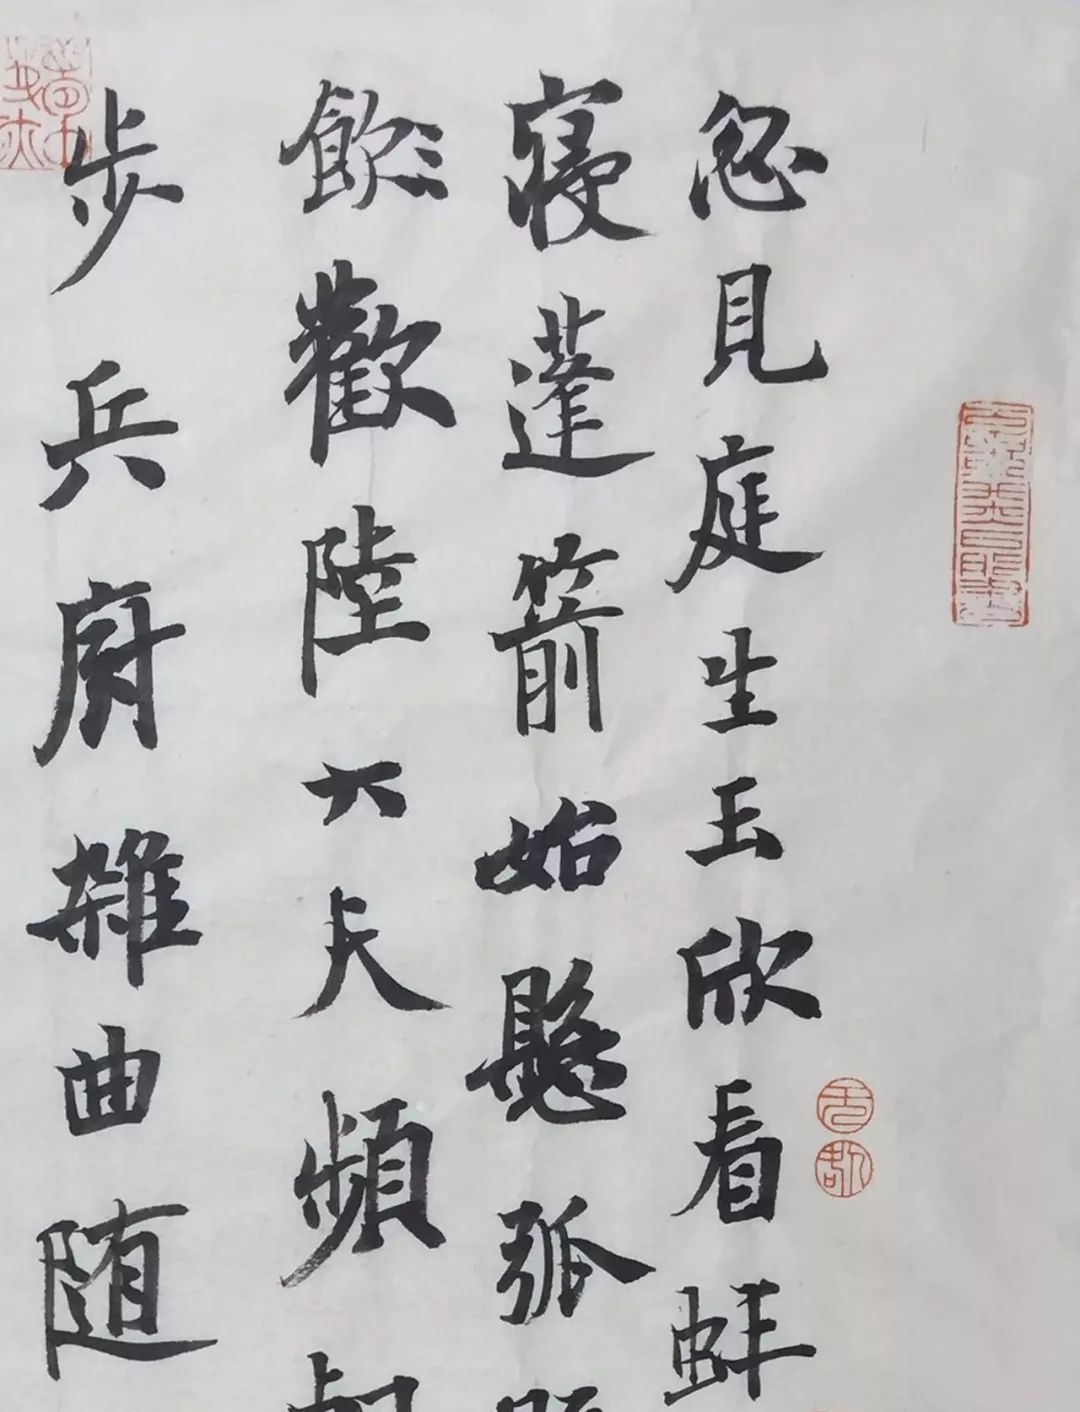 忽見庭生玉欣看蚌
寢蓬箭始懸弧
飲飲歡陸大夫頻
步兵廚雜曲随